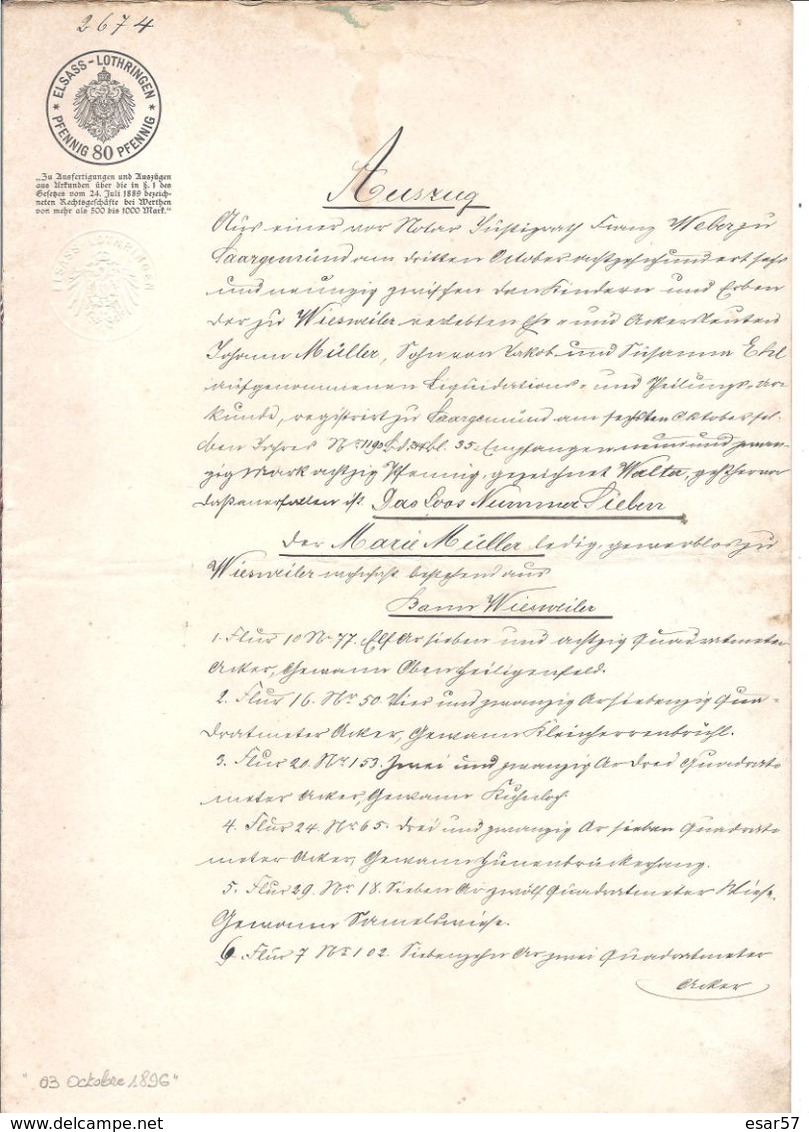 2674
ELSASS-LOTHRINGEN
PFENNIG 80 PFENNIG
„Zu Ausfertigungen und Auszügen
aus Urkunden über die in §. 1 des
Gesetzes vom 24. Juli 1889 bezeich-
neten Rechtsgeschäfte bei Werthen
von mehr als 500 bis 1000 Mark."
ELSASS-LOTHRINGEN
Auszug
Aus einer vor Notar Justizrath Franz Weber zu
Saargemünd am dritten October achtzehnhundert sechs
und neunzig zwischen den Kindern und Erben
der zu Wiesweiler verlebten Ehe- und Ackersleuten
Johann Müller, Sohn von Jakob und Susanna
aufgenommenen Liquidations- und Theilungs-ur-
kunde, registrirt zu Saargemünd am sechsten Oktober sel-
ben Jahres Nr 1190 Bd. 341 bl. 35. Empfangen neunundzwan-
zig Mark achtzig Pfennig, gezeichnet Walter, geht hervor
daß anerfallen ist Das Loos Nummer Sieben
der Marie Müller ledig, gewerblos zu
Wiesweiler wohnhaft bestehend aus
Bann Wiesweiler
1. Flur 10 Nr 77. Elf Ar sieben und achtzig Quadratmeter
Acker, Gewann Obenheiligenfeld.
2. Flur 16. Nr 50. Vier und zwanzig Ar siebenzig Qua-
dratmeter Acker, Gewann Kleinherrenbrühl.
3. Flur 20. Nr 153. Zwei und zwanzig Ar drei Quadrat-
meter Acker, Gewann
4. Flur 24. Nr 65. Drei und zwanzig Ar sieben Quadrat-
meter Acker, Gewann Hünenbrückerhang.
5. Flur 29. Nr 18. Sieben Ar zwölf Quadratmeter Wiese,
Gewann Samelswiese.
6. Flur 7 Nr 102. Siebenzehn Ar zwei Quadratmeter
Acker
"03 Octobre 1896"
esar57